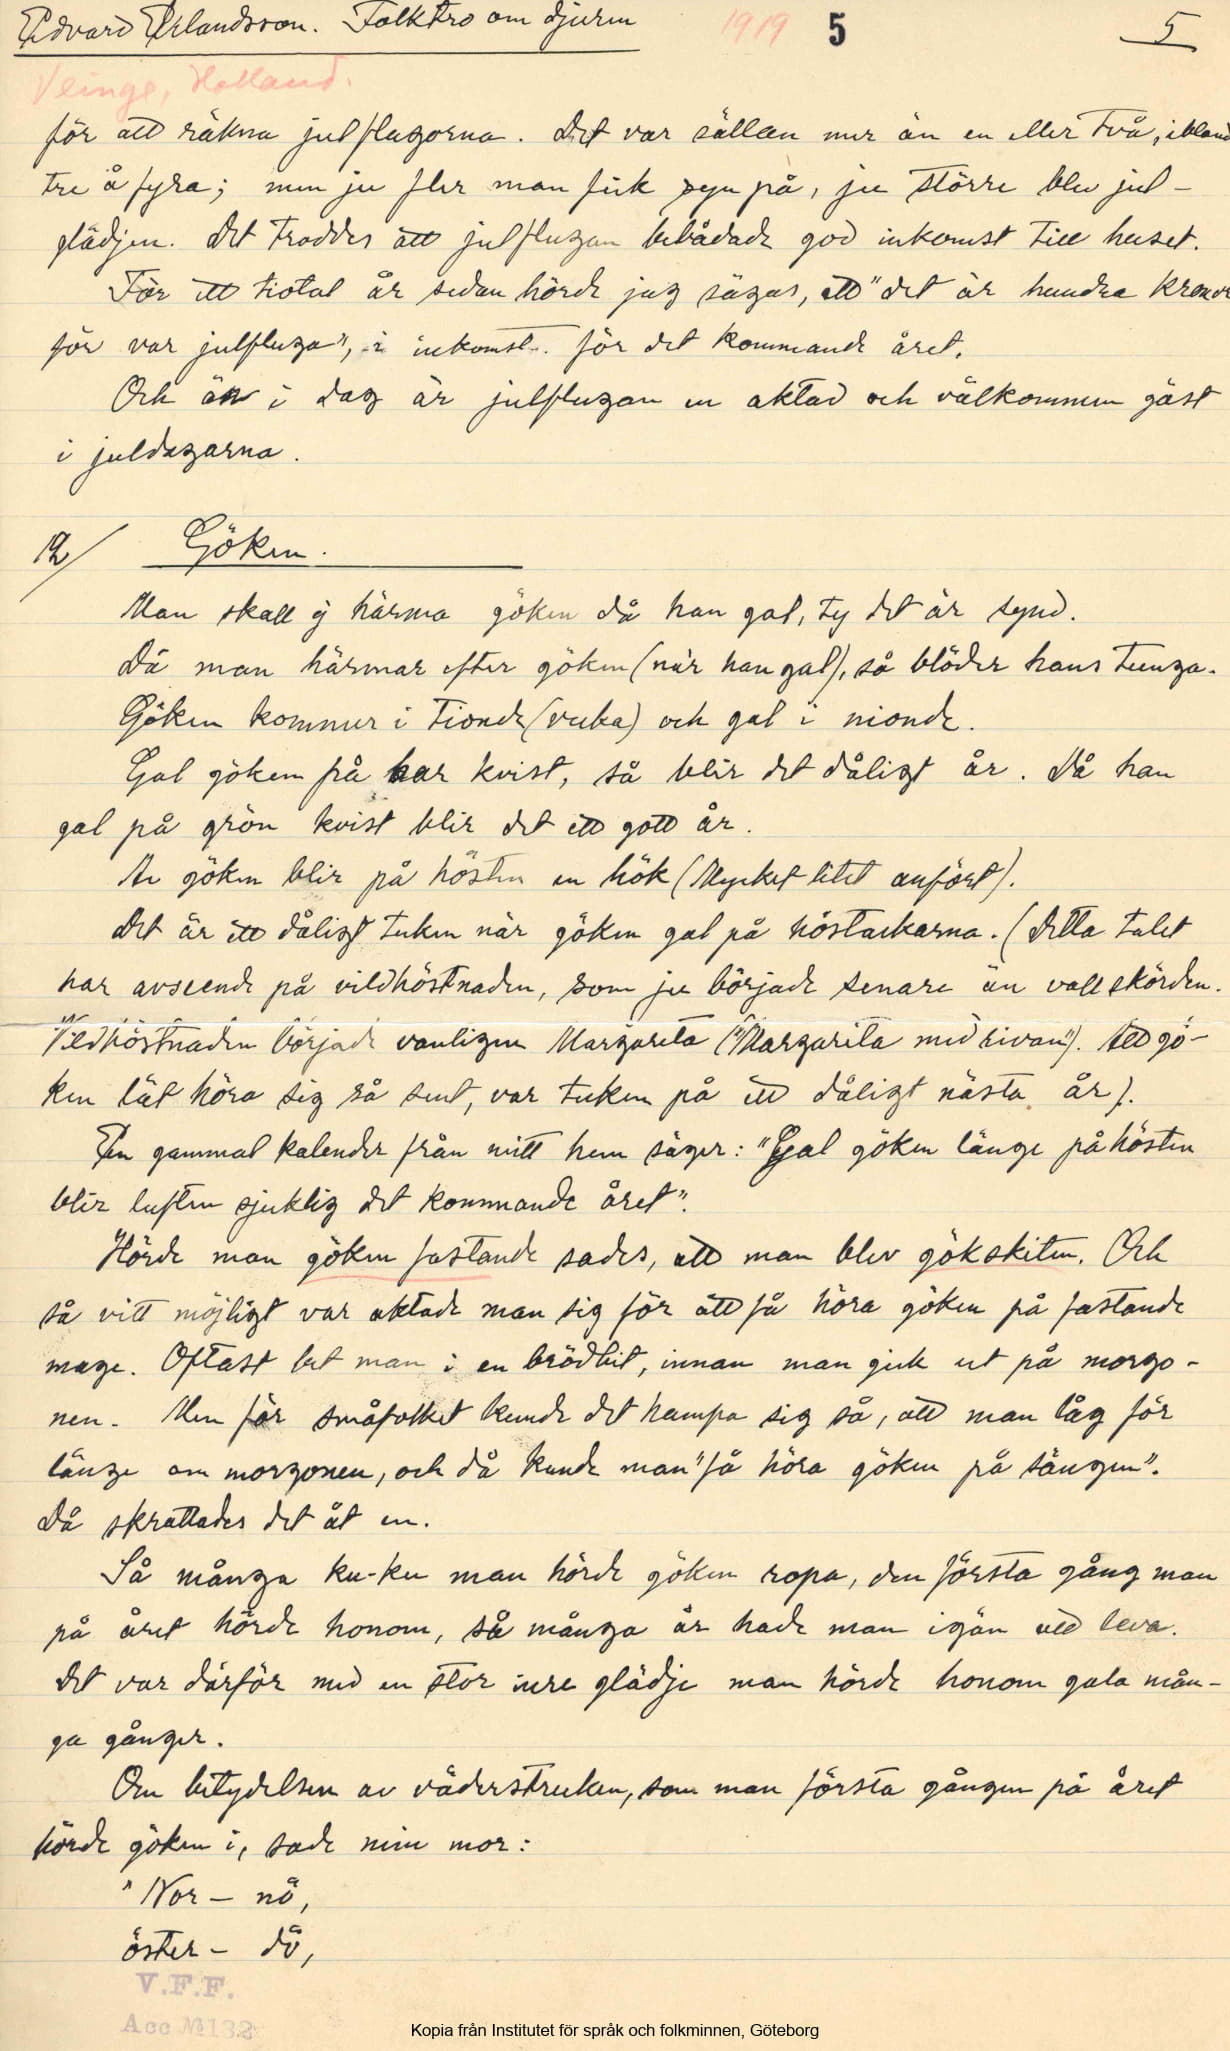 Edvard Erlandsson. Folktro om djuren 1919 5 5
Veinge, Halland.
för att räkna julflugorna. Det var sällan mer än en eller två, ibland
tre å fyra; men ju fler man fick syn på, ju större blev jul-
glädjen. Det troddes att julflugan bebådade god inkomst till huset.
För ett tiotal år sedan hörde jag sägas, att "det är hundra kronor
för var julfluga", i inkomst. för det kommande året.
Och än i dag är julflugan en aktad och välkommen gäst
i juldagarna.
12/ Göken.
Man skall ej härma göken då han gal, ty det är synd.
Då man härmar efter göken (när han gal), så blöder hans tunga.
Göken kommer i tionde (veka) och gal i nionde.
Gal göken på bar kvist, så blir det dåligt år. Då han
gal på grön kvist blir det ett gott år.
Av göken blir på hösten en hök (Mycket litet anfört).
Det är ett dåligt tecken när göken gal på höstackarna. (Detta talet
har avseende på vildhöstnaden, som ju började senare än vallskörden.
Vildhöstnaden började vanligen Margareta ("Margarita med rivan"). Att gö-
ken lät höra sig så sent, var tecken på ett dåligt nästa år).
En gammal kalender från mitt hem säger: "Gal göken länge på hösten
blir luften sjuklig det kommande året".
Hörde man göken fastande sades, att man blev gökskiten. Och
så vitt möjligt var aktade man sig för att få höra göken på fastande
mage. Oftast bet man i en brödbit, innan man gick ut på morgo-
nen. Men för småfolket kunde det hampa sig så, att man låg för
länge om morgonen, och då kunde man "få höra göken på sängen".
Då skrattades det åt en.
Så många ku-ku man hörde göken ropa, den första gång man
på året hörde honom, så många år hade man igän att leva.
Det var därför med en stor inre glädje man hörde honom gala mån-
ga gånger.
Om betydelsen av väderstrecken, som man första gången på året
hörde göken i, sade min mor:
"Nor - nö,
öster - dö,
V.F.F.
Acc № 132
Kopia från Institutet för språk och folkminnen, Göteborg